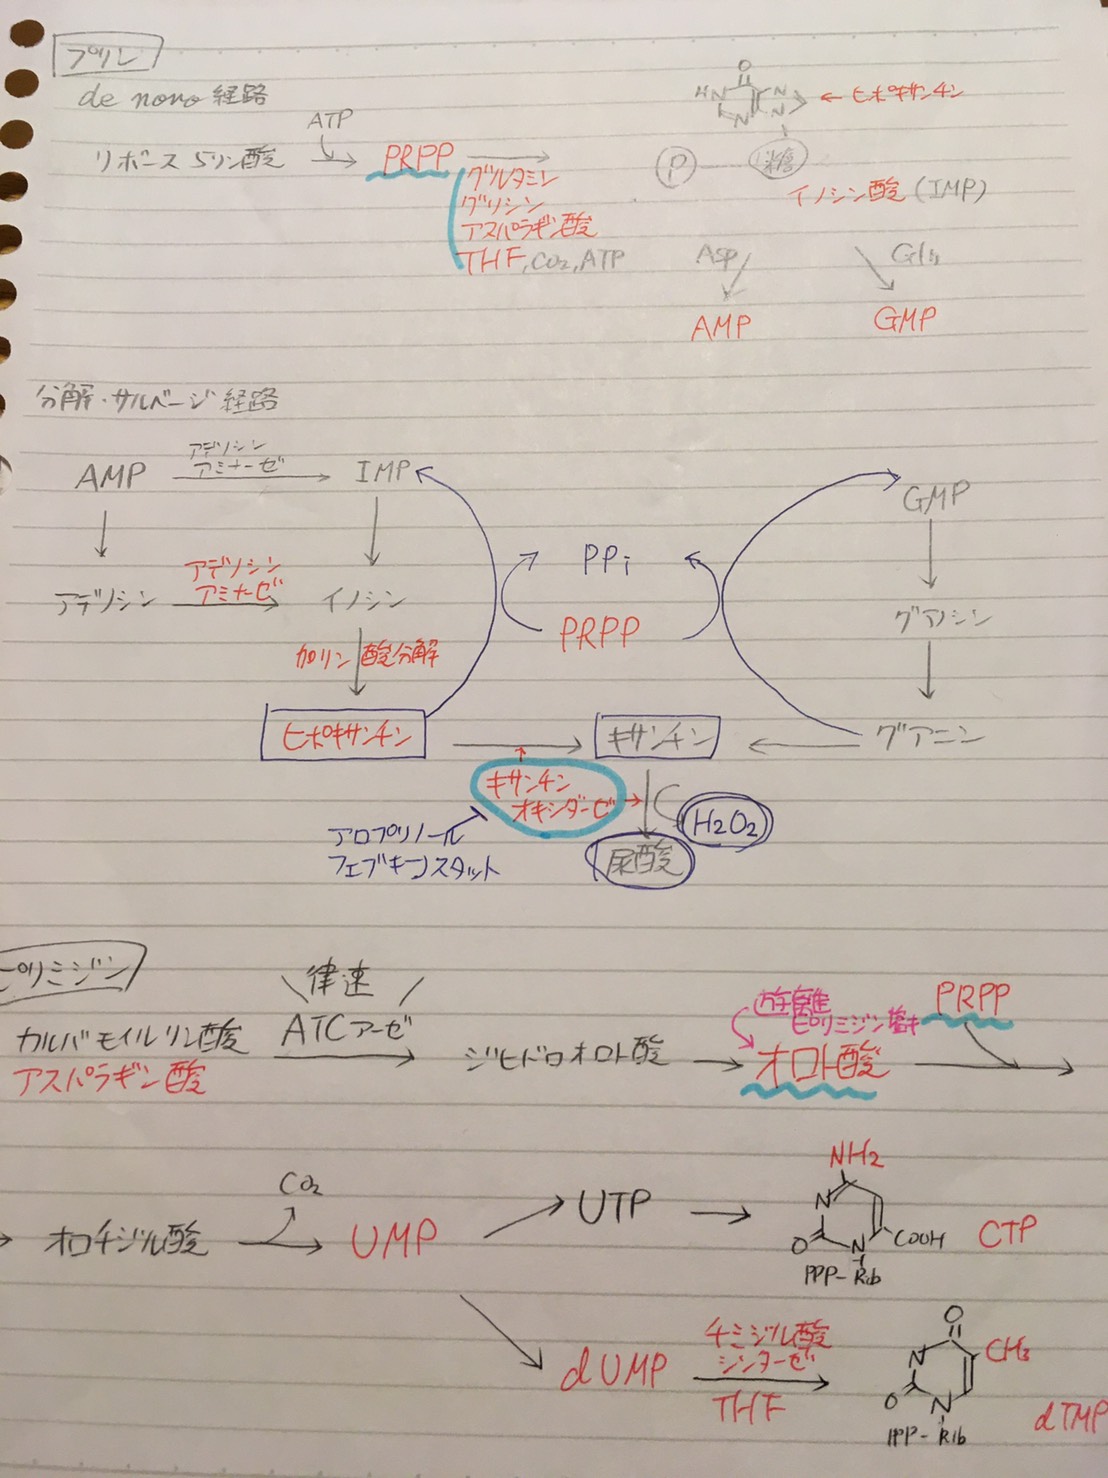 プリン
de novo 経路
リボース 5リン酸
ATP
PRPP
グルタミン
グリシン
アスパラギン酸
THF, CO2, ATP
O
HN
N
N
N
← ヒポキサンチン
P
糖
イノシン酸 (IMP)
Asp
Gln
AMP
GMP
分解・サルベージ経路
AMP
アデノシン
アミナーゼ
IMP
GMP
アデノシン
アデノシン
アミナーゼ
イノシン
PPi
PRPP
グアノシン
加リン酸分解
ヒポキサンチン
キサンチン
グアニン
キサンチン
オキシダーゼ
H2O2
尿酸
アロプリノール
フェブキソスタット
ピリミジン
律速
カルバモイルリン酸
アスパラギン酸
ATCアーゼ
ジヒドロオロト酸
遊離
ピリミジン塩基
オロト酸
PRPP
オロチジル酸
CO2
UMP
UTP
NH2
N
O
N
COOH
PPP-Rib
CTP
dUMP
チミジル酸
シンターゼ
THF
O
N
CH3
O
N
PPP-Rib
dTMP